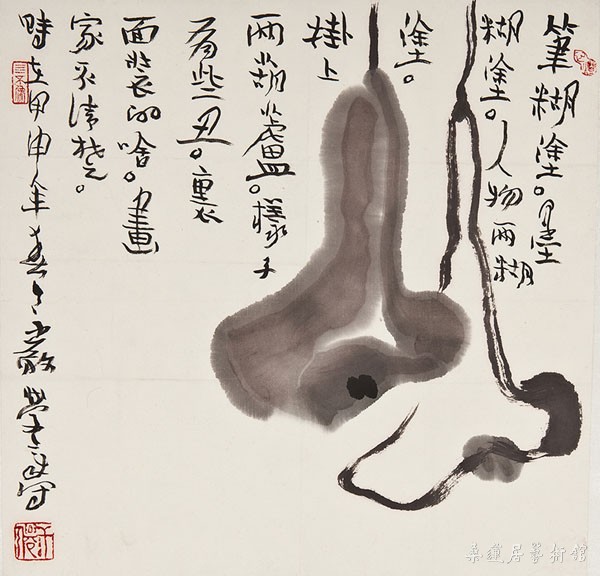 筆糊塗。墨
糊塗。人物兩糊
塗。
掛上
兩葫蘆。樣子
有些丑。裏
面裝的啥。畫
家不清楚。
時在甲申年春
桑蓮居藝術館